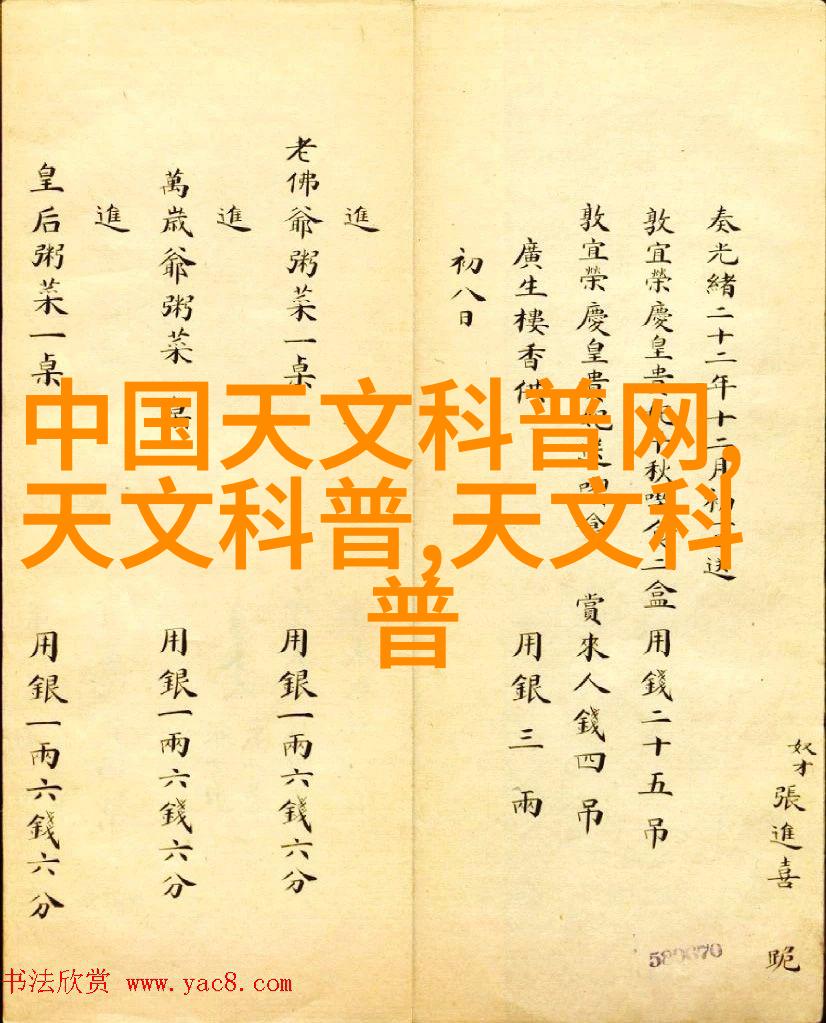 奴才張進喜 跪
奏光緒二十二年十二月初 送
敦宜榮慶皇貴 秋 二盒 用錢二十五吊
敦宜榮慶皇貴妃 賞來人錢四吊
廣生樓香供 用銀三兩
初八日
進
老佛爺粥菜一桌 用銀一兩六錢六分
進
萬歲爺粥菜 桌 用銀一兩六錢六分
進
皇后粥菜一桌 用銀一兩六錢六分
中国天文科普网,
天文科普,天文科
普
580670
书法欣赏 www.yac8.com